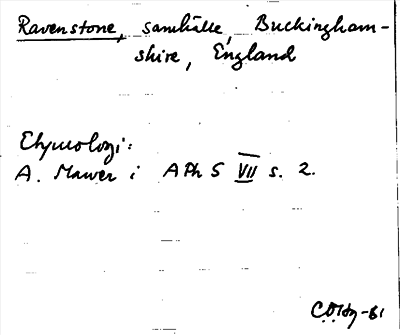 Ravenstone, samhälle, Buckingham-
shire, England
Etymologi:
A. Mawer i APhS VII s. 2.